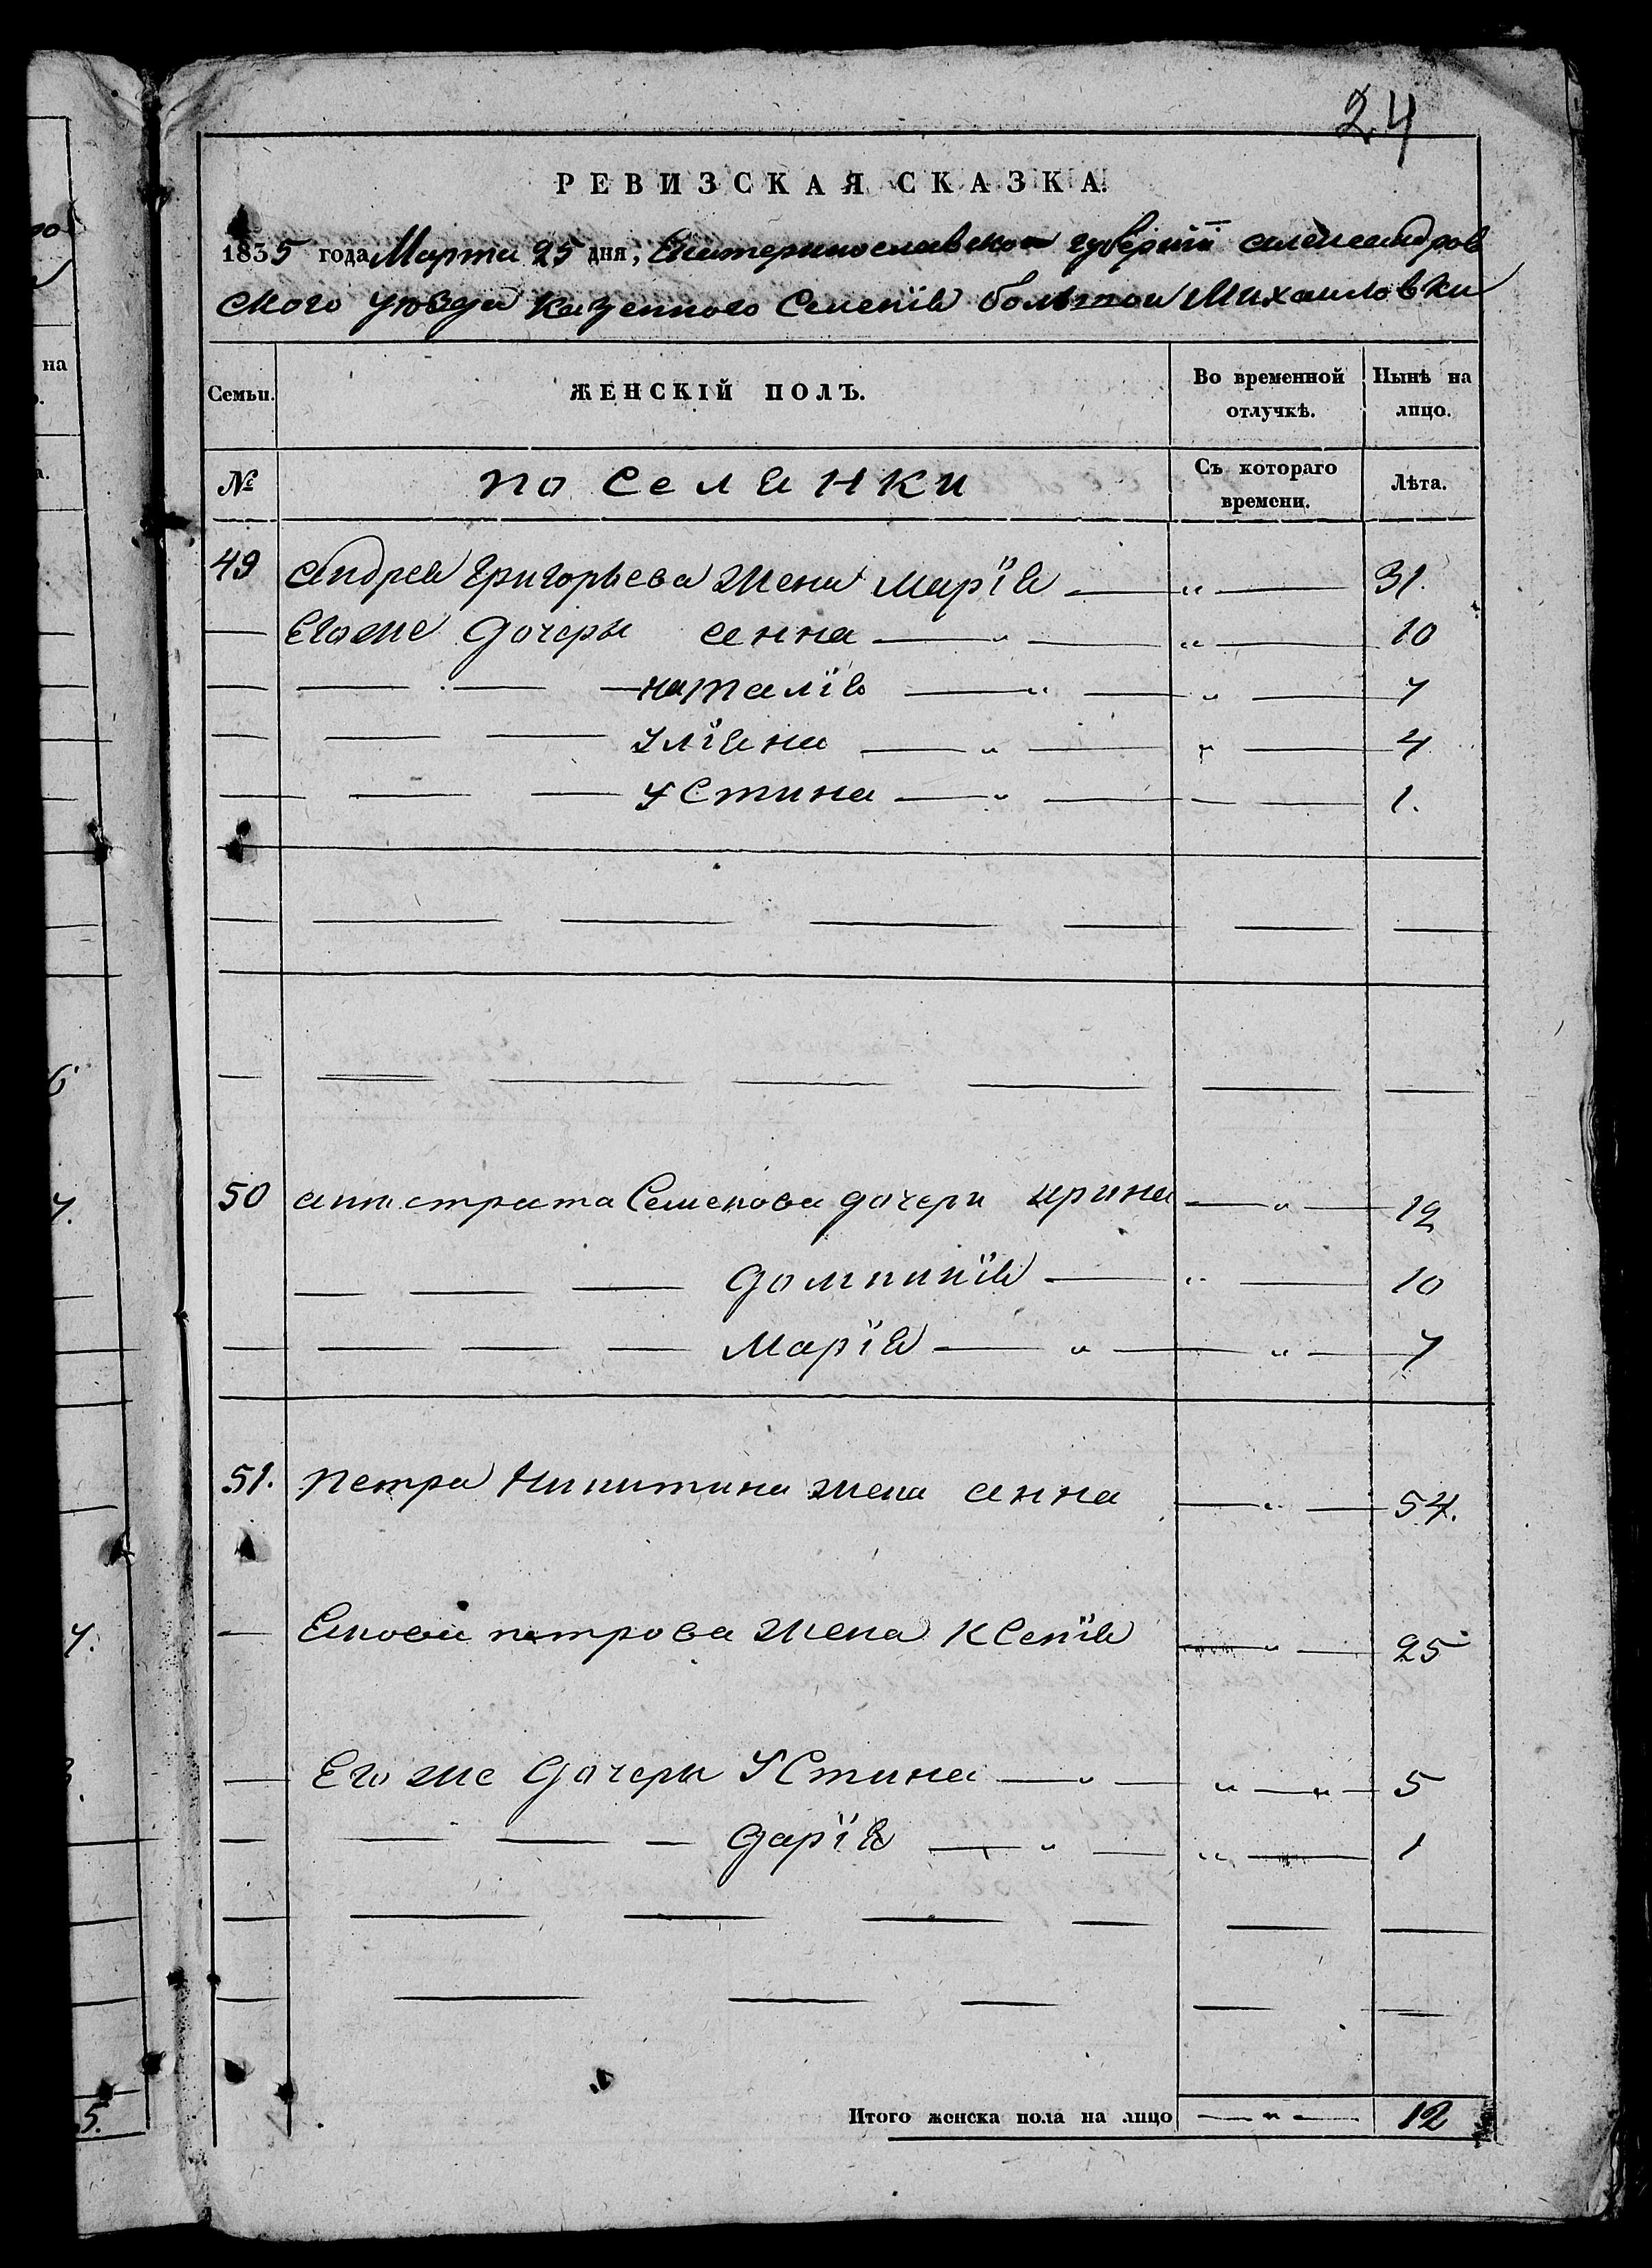 24
РЕВИЗСКАЯ СКАЗКА.
1835 года Марта 25 дня, Екатеринославской губернiи александров
ского уѣзда казенного Селенiя большой Михаиловки
Семьи. ЖЕНСКІЙ ПОЛЪ. Во временной отлучкѣ. Нынѣ на лицо.
№ поселянки Съ котораго времени. Лѣта.
49 андрея григорьева жена марiя — „ — 31.
— Егоже дочеры анна — „ — „ — 10
— — — наталiя — „ — „ — 7
— — — улiяна — „ — „ — 4
— — — устина — „ — — — 1.
50 Семенова дочери ирина — „ — 12
— — — домникiя — „ — 10
— — — — Марiя — „ — „ — 7
51. петра Никитина жена анна — „ — 54.
— петрова жена Ксенiя — „ — 25
— Его же дочеры Устина — „ — „ — „ — 5
— — — — дарiя — „ — „ — 1
Итого женска пола на лицо — „ — 12
на
6
7.
7.
5.